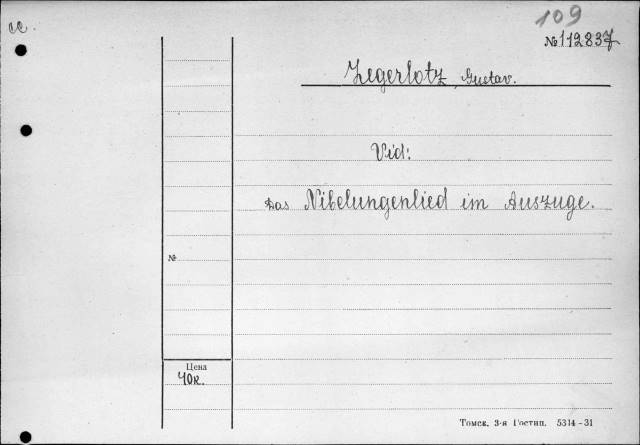 109
№ 112837
Legerlotz, Gustav.
Vid:
Das Nibelungenlied im Auszuge.
№
Цена
40к.
Томск. 3-я Гостип. 5314-31